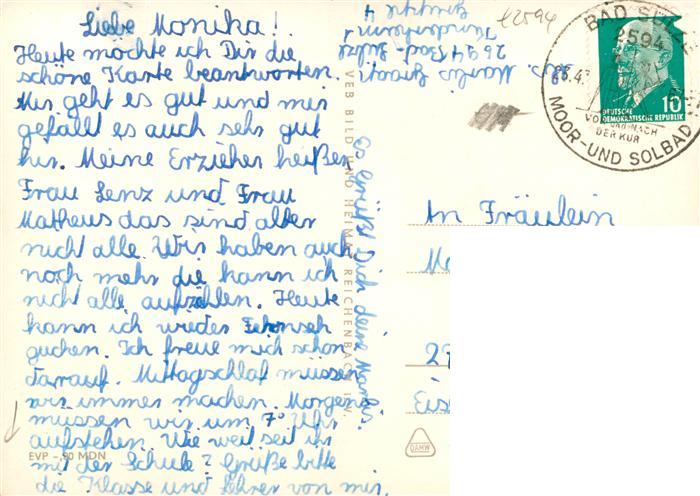 Liebe Monika!
Heute möchte ich Dir die
schöne Karte beantworten.
Mir geht es gut und mir
gefällt es auch sehr gut
hir. Meine Erzieher heißen
Frau Lenz und Frau
Matheus das sind alter
nicht alle. Wir haben auch
noch mehr die kann ich
nicht alle aufzälen. Heute
kann ich wieder Fehrnseh
gucken. Ich freue mich schon
darauf. Mittagschlaf müssen
wir immer machen. Morgens
müssen wir um 7° Uhr
aufstehen. Wie weit seit ihr
mit der Schule? Grüße bitte
die Klasse und Lehrer von mir.
Es Grüßt Dich deine Marlis.
EVP -,20 MDN
VEB BILD UND HEIMAT REICHENBACH I. V.
Abs. Marlis
2594 Bad-Sülze
Kinderheim
Gruppe 4
2594
BAD SÜLZE
2594
MOOR- UND SOLBAD
VOR UND NACH
DER KUR
10
DEUTSCHE
DEMOKRATISCHE REPUBLIK
An Fräulein
Mo
29
Eis
DAMW